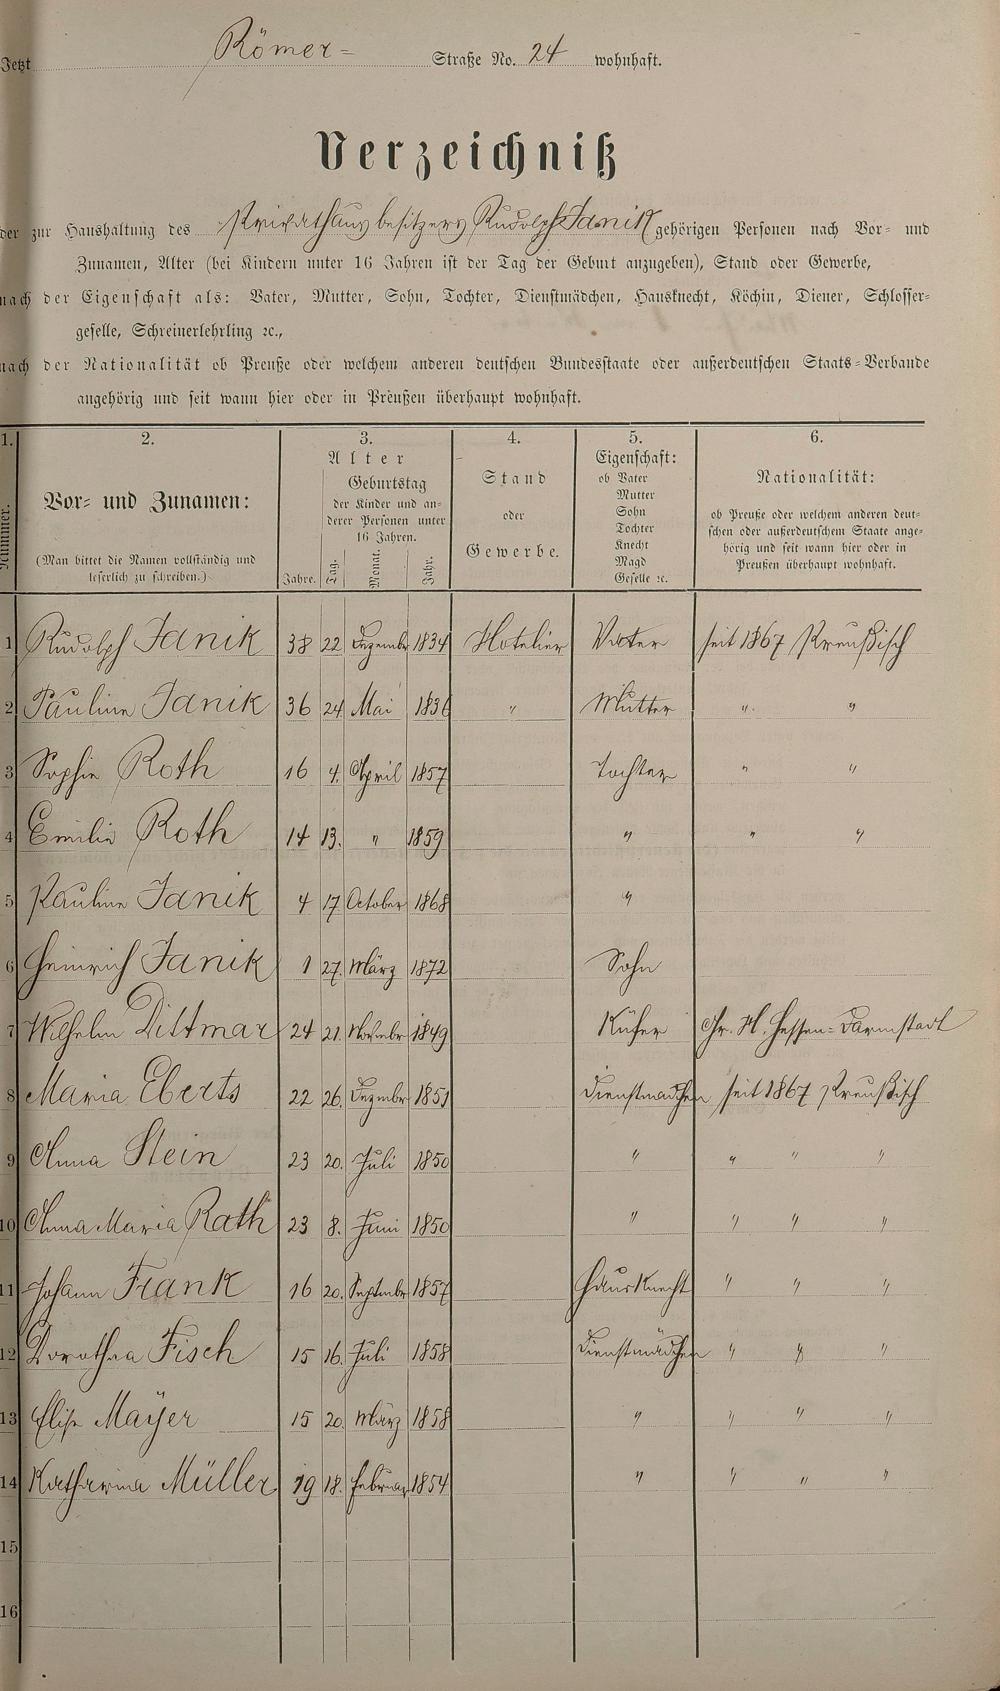 Jetzt Römer= Straße No. 24 wohnhaft.
Verzeichniß
der zur Haushaltung des Privathausbesitzers Rudolph Janik gehörigen Personen nach Vor= und
Zunamen, Alter (bei Kindern unter 16 Jahren ist der Tag der Geburt anzugeben), Stand oder Gewerbe,
nach der Eigenschaft als: Vater, Mutter, Sohn, Tochter, Dienstmädchen, Hausknecht, Köchin, Diener, Schlosser=
geselle, Schreinerlehrling ꝛc.,
nach der Nationalität ob Preuße oder welchem anderen deutschen Bundesstaate oder außerdeutschen Staats=Verbande
angehörig und seit wann hier oder in Preußen überhaupt wohnhaft.
1. 2. 3. 4. 5. 6.
Nummer.
Vor= und Zunamen:
(Man bittet die Namen vollständig und
leserlich zu schreiben.)
Alter
Jahre.
Geburtstag
der Kinder und an=
derer Personen unter
16 Jahren.
Tag. Monat. Jahr.
Stand
oder
Gewerbe.
Eigenschaft:
ob Vater
Mutter
Sohn
Tochter
Knecht
Magd
Geselle ꝛc.
Nationalität:
ob Preuße oder welchem anderen deut=
schen oder außerdeutschem Staate ange=
hörig und seit wann hier oder in
Preußen überhaupt wohnhaft.
1 Rudolph Janik 38 22 Dezember 1834 Hotelier Vater seit 1867 Preußisch
2 Pauline Janik 36 24 Mai 1836 " Mutter " "
3 Sophie Roth 16 4. April 1857 Tochter " "
4 Emilie Roth 14 13. " 1859 " " "
5 Pauline Janik 4 17 October 1868 "
6 Heinrich Janik 1 27. März 1872 Sohn
7 Wilhelm Dittmar 24 21. November 1849 Küfer Gr. H. Hessen=Darmstadt
8 Maria Eberts 22 26. Dezember 1851 Dienstmädchen seit 1867 Preußisch
9 Anna Stein 23 20. Juli 1850 " " " "
10 Anna Maria Rath 23 8. Juni 1850 " " " "
11 Johann Frank 16 20. September 1857 Hausknecht " " "
12 Dorothea Fisch 15 16. Juli 1858 Dienstmädchen " " "
13 Elise Mayer 15 20. März 1858 " " " "
14 Katharina Müller 19 18. Februar 1854 " " " "
15
16